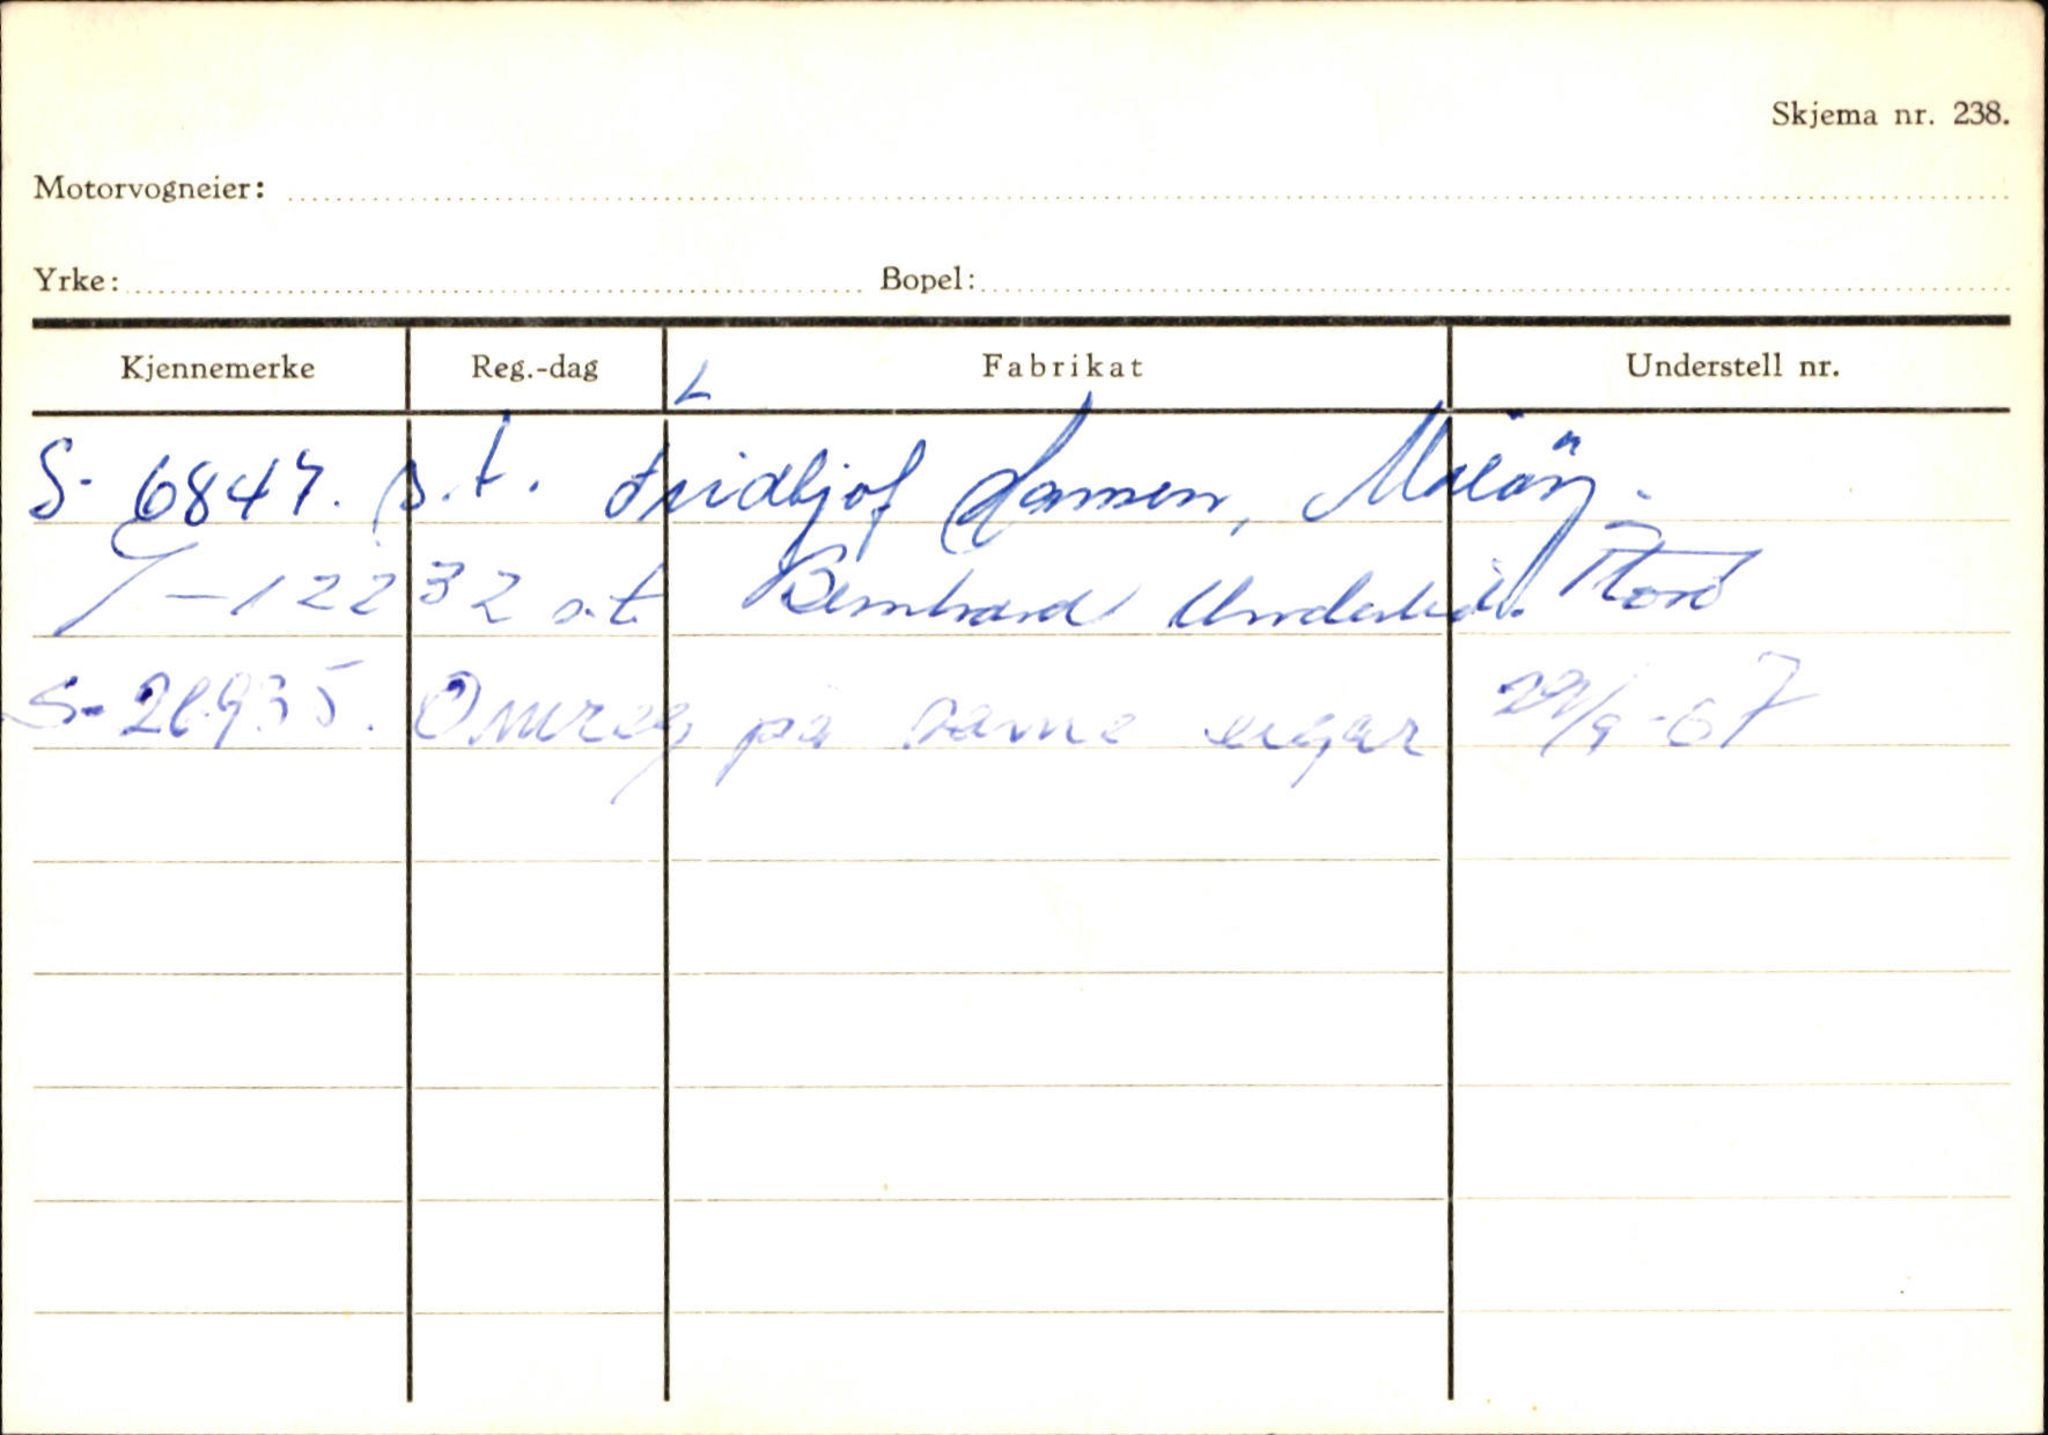 Skjema nr. 238.
Motorvogneier:
Yrke: Bopel:
Kjennemerke Reg.-dag Fabrikat Understell nr.
S- 6847. s.t. Fridtjof Hansen, Måløy.
-12232 s.t. Bernhard
S- 935. Omreg på same eigar 29/9-67